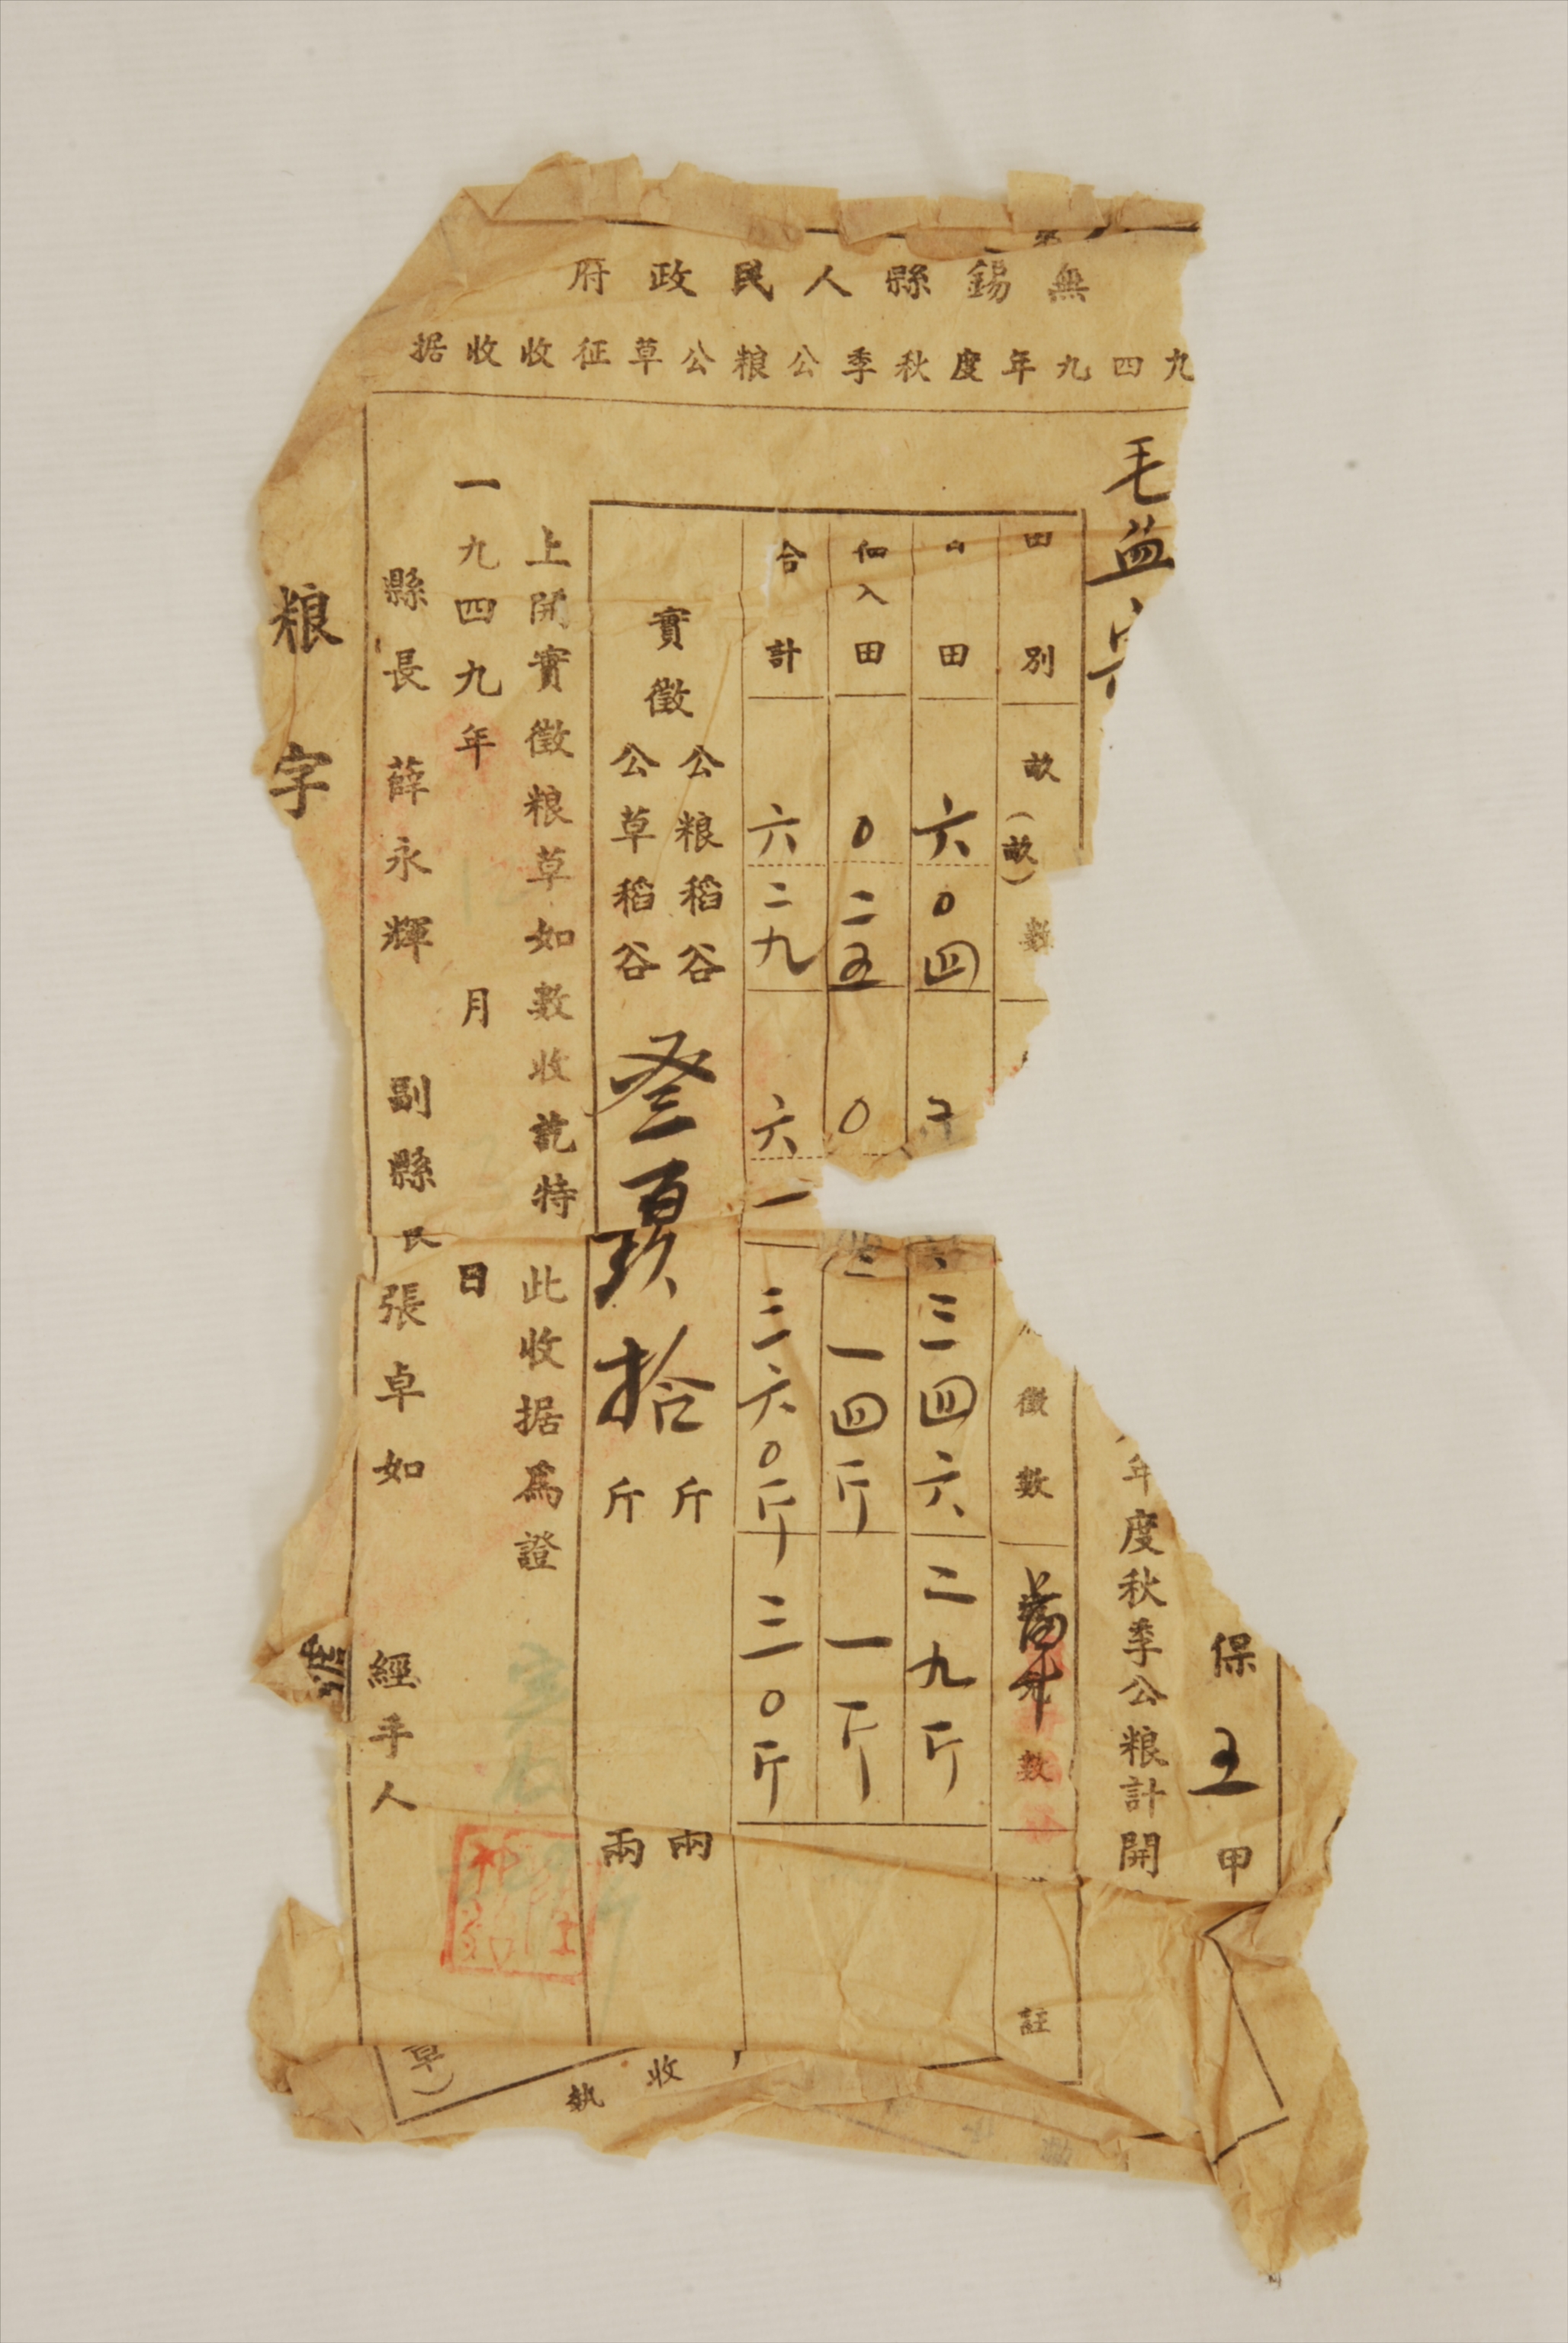 無錫縣人民政府
九四九年度秋季公粮公草征收收据
保五甲
毛益
年度秋季公粮計開
田別 畝(畝)數 徵數 數 註
田 六〇四 三四六 二九斤
佃入田 〇二五 〇 一四斤 一斤
合計 六二九 六一 三六〇斤 三〇斤
實徵 公粮稻谷 斤 兩
公草稻谷 斤 兩
叁百玖拾
上開實徵粮草如數收訖特此收据爲證
一九四九年 月 日
縣長 薛永輝 副縣長 張卓如 經手人
粮字
草)
收
執